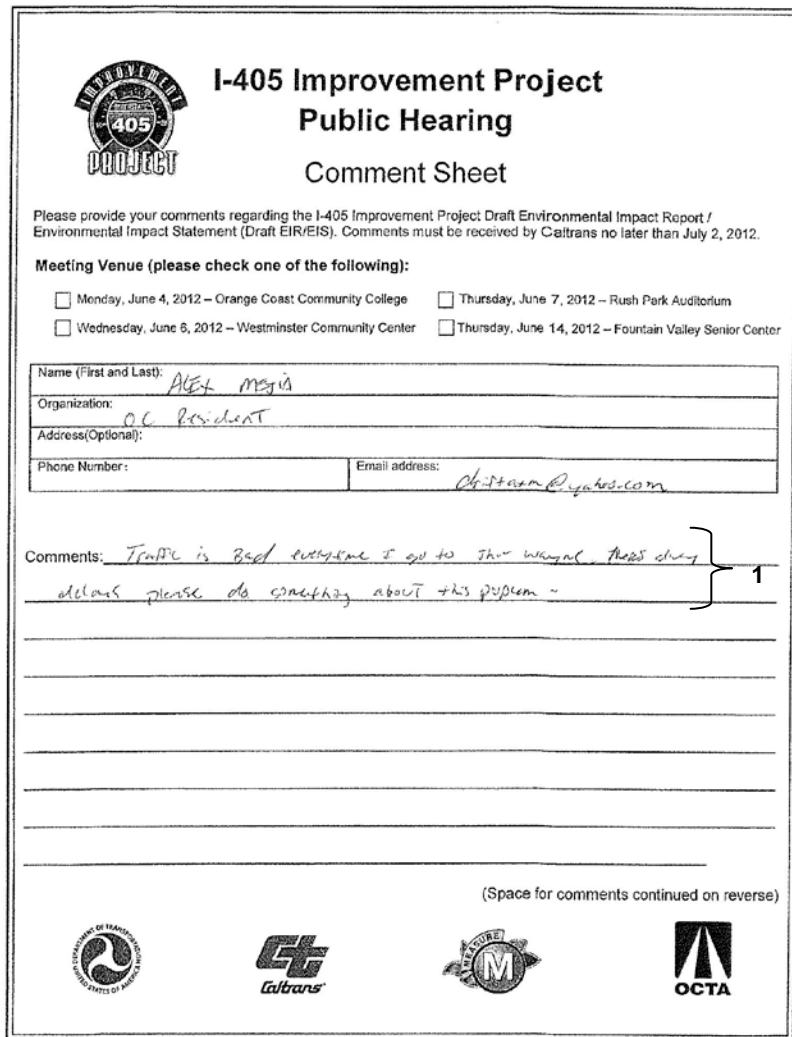 IMPROVEMENT
405
PROJECT
I-405 Improvement Project
Public Hearing
Comment Sheet
Please provide your comments regarding the I-405 Improvement Project Draft Environmental Impact Report /
Environmental Impact Statement (Draft EIR/EIS). Comments must be received by Caltrans no later than July 2, 2012.
Meeting Venue (please check one of the following):
Monday, June 4, 2012 – Orange Coast Community College
Thursday, June 7, 2012 – Rush Park Auditorium
Wednesday, June 6, 2012 – Westminster Community Center
Thursday, June 14, 2012 – Fountain Valley Senior Center
Name (First and Last): Alex Mejia
Organization: OC Resident
Address(Optional):
Phone Number:
Email address: @yahoo.com
Comments: Traffic is Bad everytime I go to Wayne
please do something about this
1
(Space for comments continued on reverse)
DEPARTMENT OF TRANSPORTATION
UNITED STATES OF AMERICA
Caltrans
MEASURE
M
OCTA